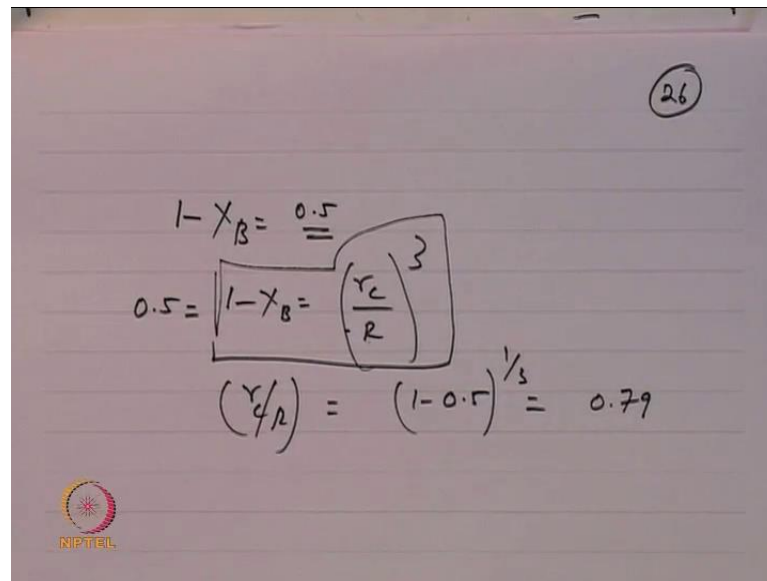 26
1 - X_B = 0.5
0.5 = 1 - X_B = (r_c / R)^3
(r_c/R) = (1 - 0.5)^{1/3} = 0.79
NPTEL